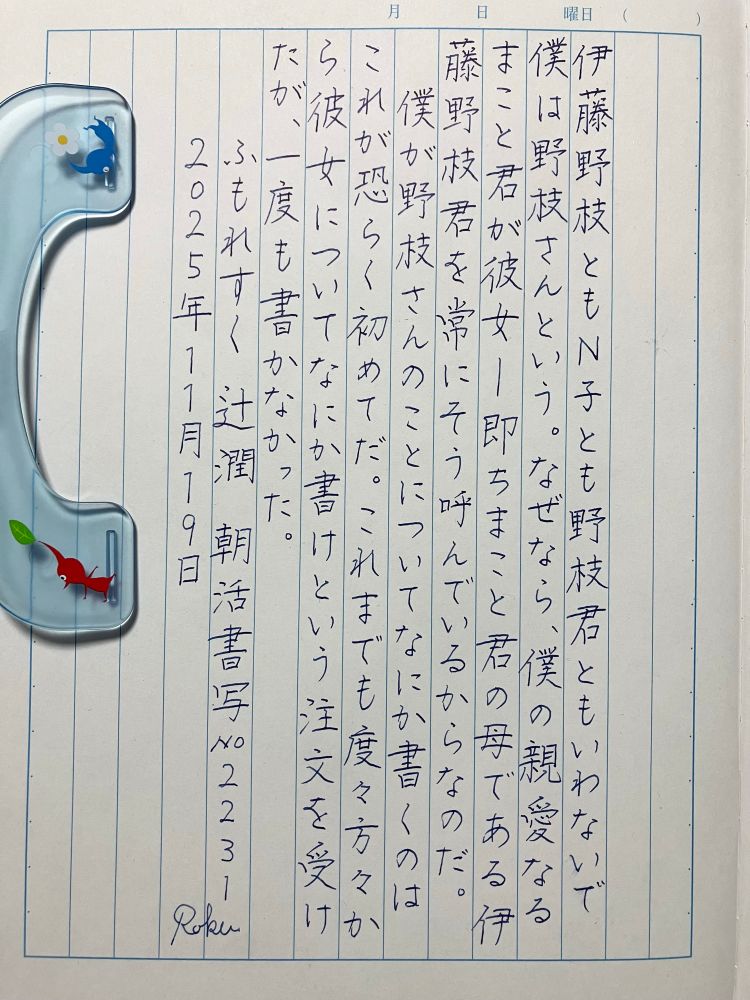 月 日 曜日 ( )
伊藤野枝ともN子とも野枝君ともいわないで
僕は野枝さんという。なぜなら、僕の親愛なる
まこと君が彼女ー即ちまこと君の母である伊
藤野枝君を常にそう呼んでいるからなのだ。
僕が野枝さんのことについてなにか書くのは
これが恐らく初めてだ。これまでも度々方々か
ら彼女についてなにか書けという注文を受け
たが、一度も書かなかった。
ふもれすく 辻潤 朝活書写NO2231
2025年11月19日
Roku